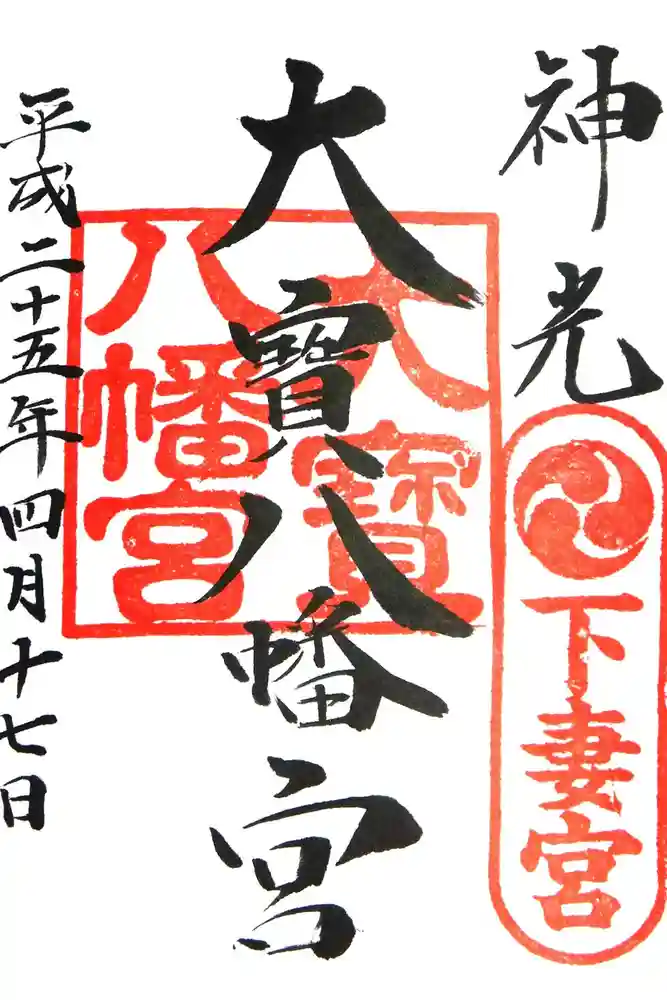 神光
下妻宮
大寶八幡宮
大寶八幡宮
平成二十五年四月十七日